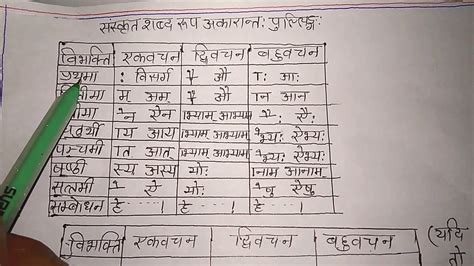 संस्कृत शब्द रूप अकारान्तः पुल्लिङ्गः
विभक्ति एकवचन द्विवचन बहुवचन
प्रथमा : विसर्ग ौ औ ाः आः
म् अम् ौ औ ान आन
ेन ऐन ाभ्याम् आभ्याम् ैः ऐः
ाय आय ाभ्याम् आभ्याम् ेभ्यः ऐभ्यः
पञ्चमी ात् आत् ाभ्याम् आभ्याम् ेभ्यः ऐभ्यः
षष्ठी स्य अस्य योः ानाम आनाम्
सप्तमी े ऐ योः ेषु ऐषु
सम्बोधन हे ! हे ! हे !
विभक्ति एकवचन द्विवचन बहुवचन
(यदि
तो